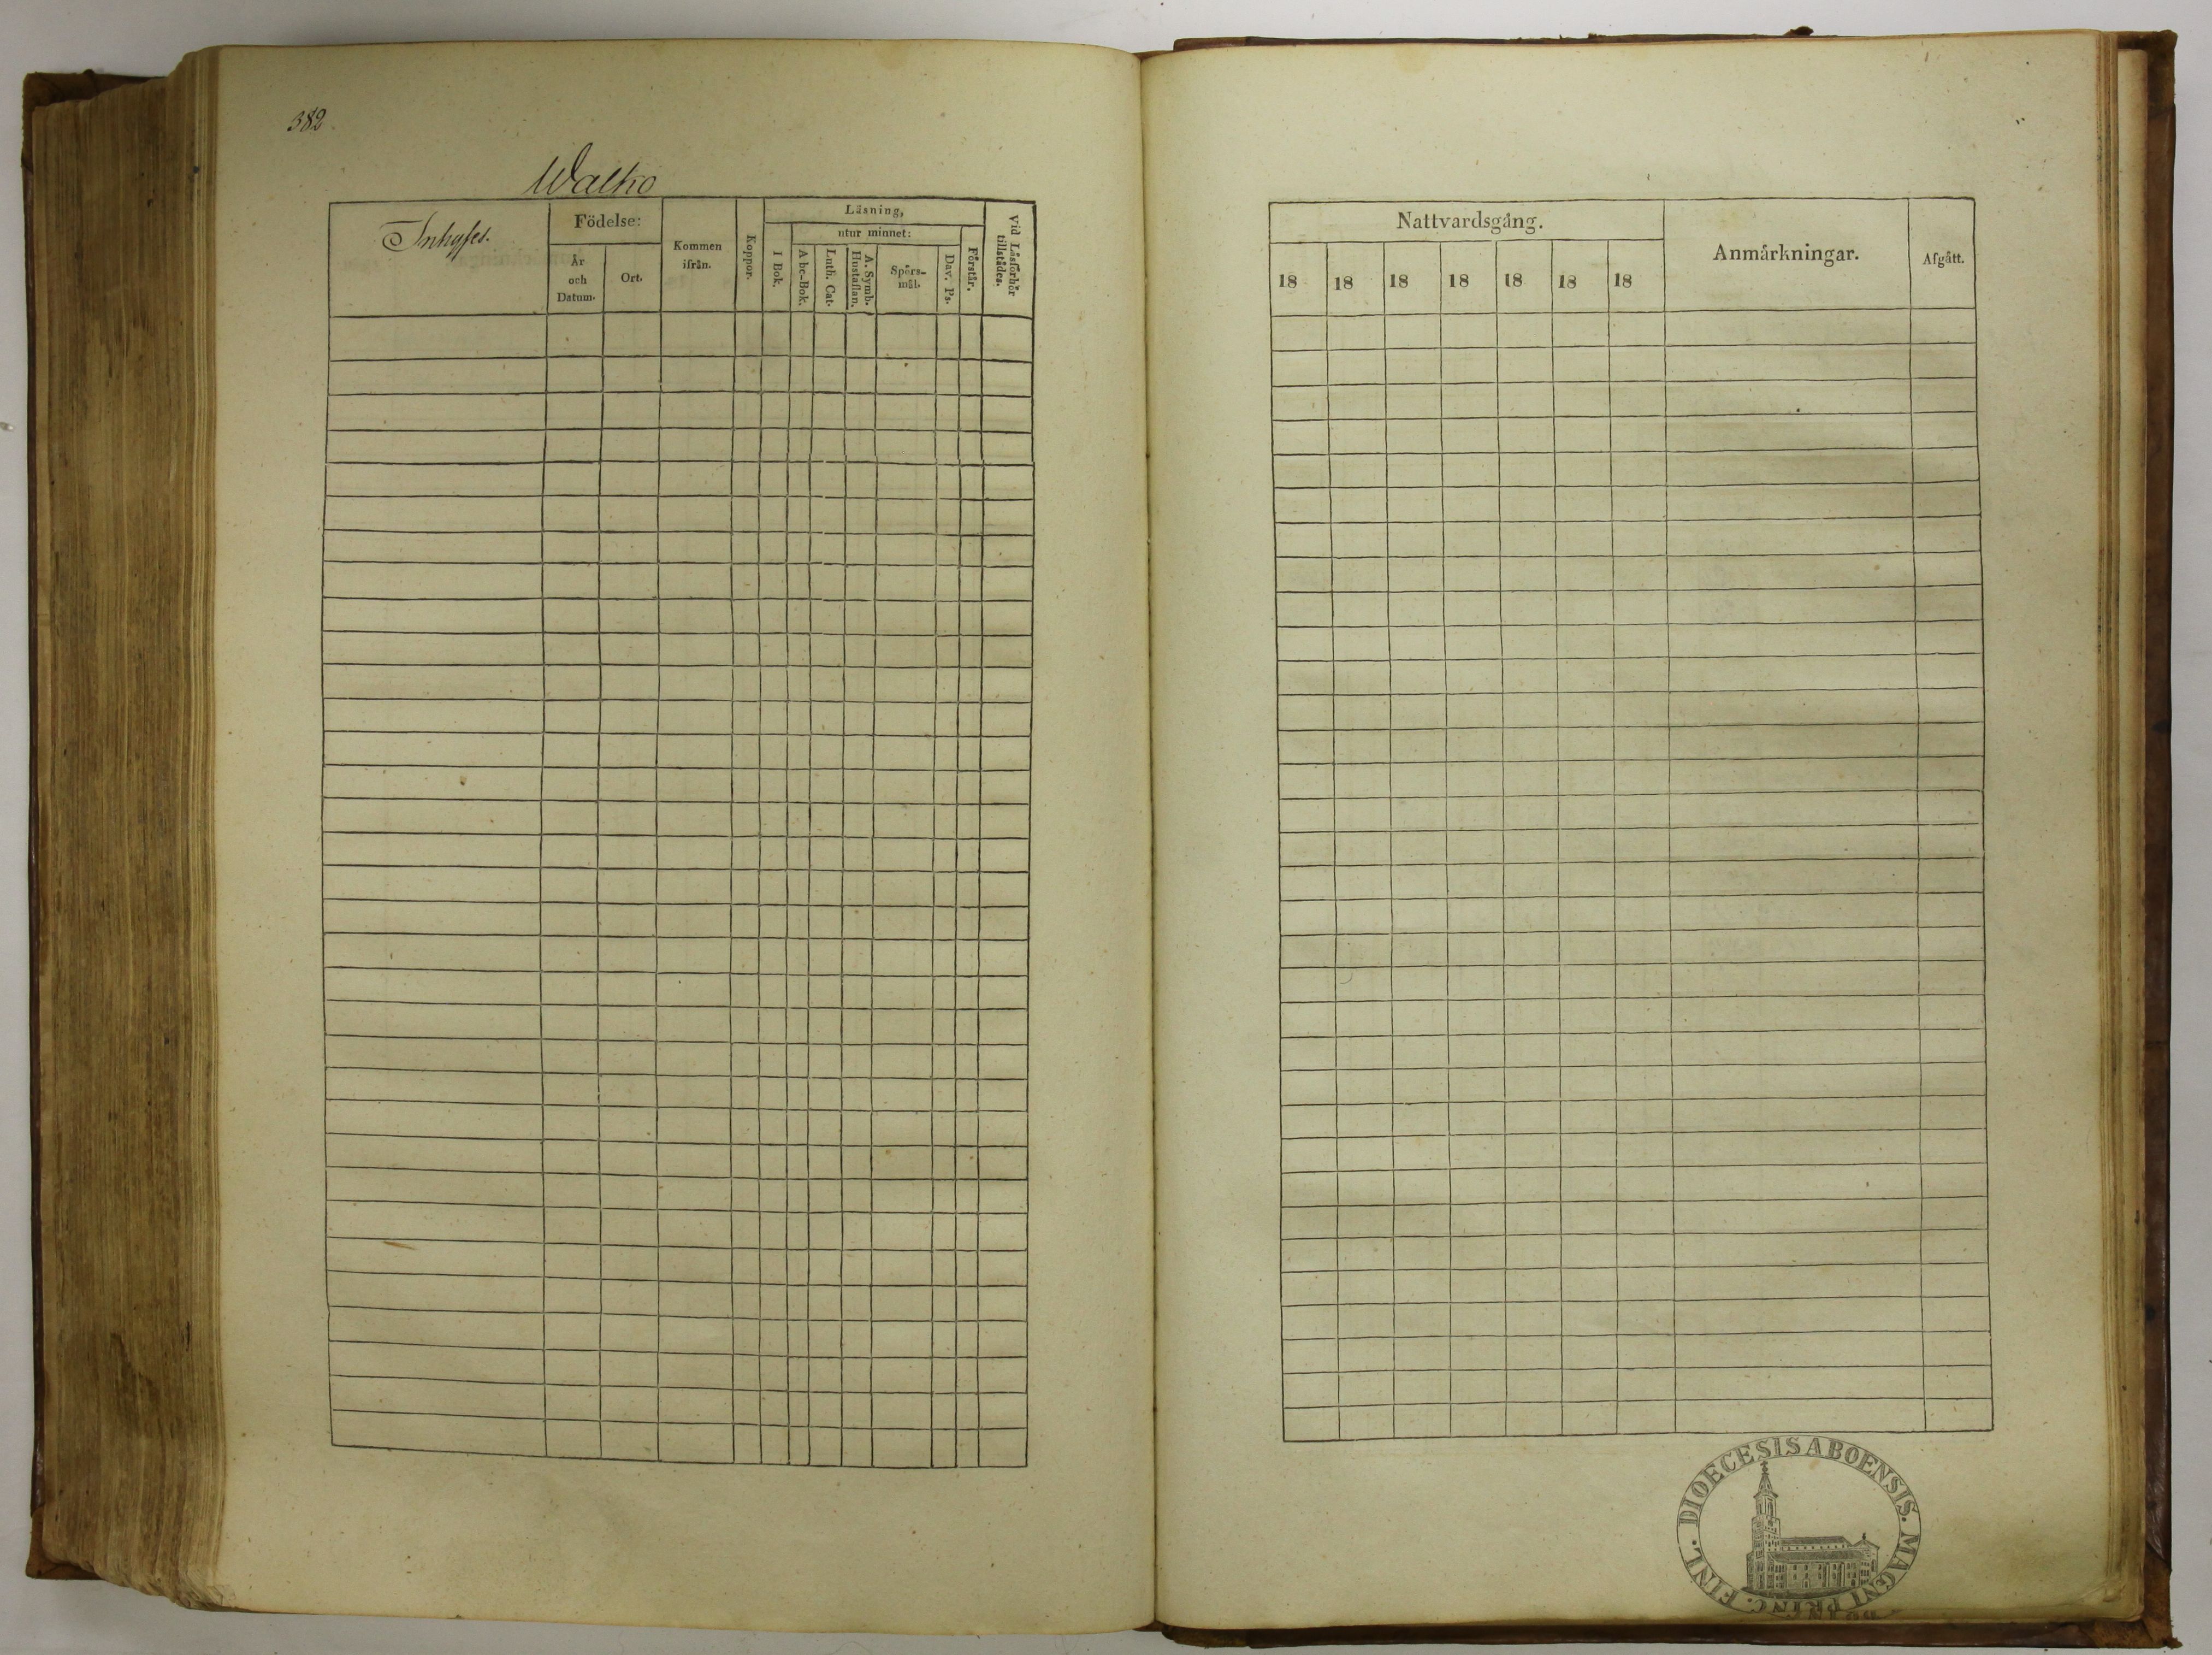 382
Walko
Inhyses.
Födelse:
År
och
Datum.
Ort.
Kommen
ifrån.
Koppor.
Läsning,
utur minnet:
I Bok.
A be-Bok.
Luth. Cat.
A. Symb.
Hustaflan.
Spörs-
mål.
Dav. Ps.
Förstår.
Vid Läsförhör
tillstädes.
Nattvardsgång.
18 18 18 18 18 18 18
Anmärkningar.
Afgått.
DIOECESIS ABOENSIS. MAGNI PRINC. FINL.